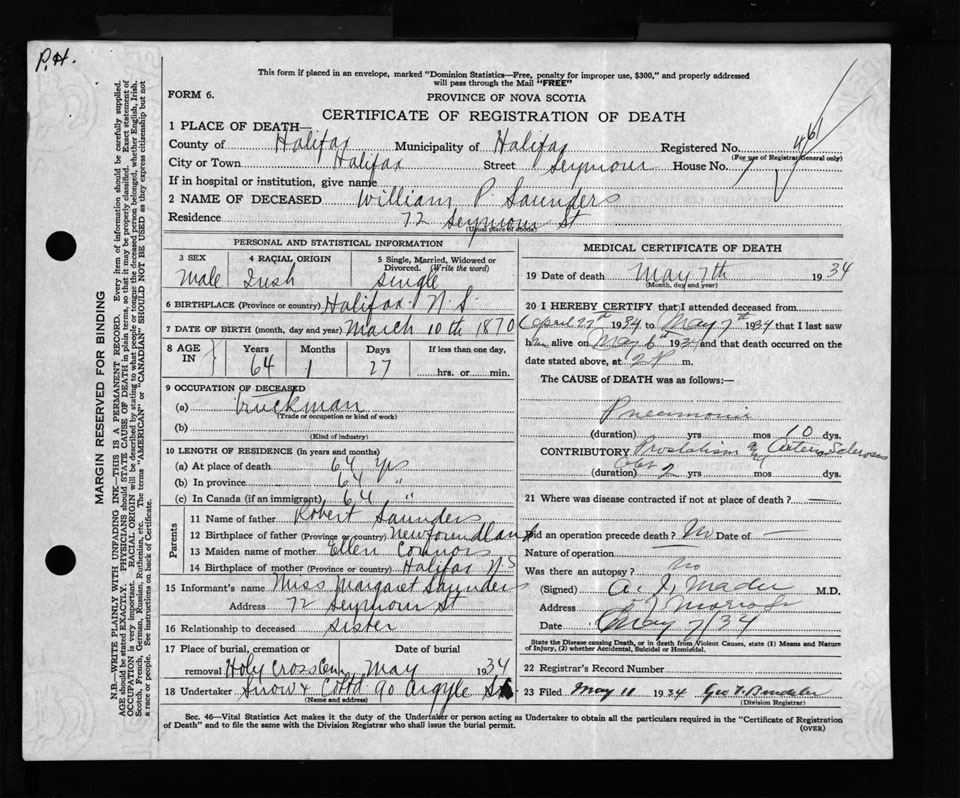 P.H.
This form if placed in an envelope, marked "Dominion Statistics—Free, penalty for improper use, $300," and properly addressed
will pass through the Mail "FREE"
FORM 6.
PROVINCE OF NOVA SCOTIA
CERTIFICATE OF REGISTRATION OF DEATH
1 PLACE OF DEATH—
County of Halifax Municipality of Halifax Registered No.
(For use of Registrar General only)
City or Town Halifax Street Seymour House No.
If in hospital or institution, give name
2 NAME OF DECEASED William P Saunders
Residence 72 Seymour St
(Usual place of abode)
MARGIN RESERVED FOR BINDING
N.B.—WRITE PLAINLY WITH UNFADING INK—THIS IS A PERMANENT RECORD. Every item of information should be carefully supplied.
AGE should be stated EXACTLY. PHYSICIANS should STATE CAUSE OF DEATH in plain terms, so that it may be properly classified. Exact statement of
OCCUPATION is very important. RACIAL ORIGIN will be described by stating to what people or tongue the deceased person belonged, whether English, Irish,
Scotch, French, German, Russian, Ruthenian, etc. The terms "AMERICAN" or "CANADIAN" SHOULD NOT BE USED as they express citizenship but not
a race or people. See instructions on back of Certificate.
PERSONAL AND STATISTICAL INFORMATION
3 SEX 4 RACIAL ORIGIN 5 Single, Married, Widowed or
Divorced. (Write the word)
Male Irish Single
6 BIRTHPLACE (Province or country) Halifax N S
7 DATE OF BIRTH (month, day and year) March 10th 1870
8 AGE IN Years Months Days If less than one day,
64 1 27 hrs. or min.
9 OCCUPATION OF DECEASED
(a) Truckman
(Trade or occupation or kind of work)
(b)
(Kind of industry)
10 LENGTH OF RESIDENCE (in years and months)
(a) At place of death 64 yrs
(b) In province 64 "
(c) In Canada (if an immigrant) 64 "
Parents
11 Name of father Robert Saunders
12 Birthplace of father (Province or country) Newfoundland
13 Maiden name of mother Ellen Connors
14 Birthplace of mother (Province or country) Halifax N S
15 Informant's name Miss Margaret Saunders
Address 72 Seymour St
16 Relationship to deceased Sister
17 Place of burial, cremation or Date of burial
removal Holy Cross Cem May 1934
18 Undertaker Snow & Co Ltd 90 Argyle St
(Name and address)
MEDICAL CERTIFICATE OF DEATH
19 Date of death May 7th 1934
(Month, day and year)
20 I HEREBY CERTIFY that I attended deceased from
April 27th 1934 to May 7th 1934 that I last saw
him alive on May 6th 1934 and that death occurred on the
date stated above, at 2 P m.
The CAUSE of DEATH was as follows:—
Pneumonia
(duration) yrs mos 10 dys.
CONTRIBUTORY Prostatism & Arterio Sclerosis
(duration) 2 yrs mos dys
21 Where was disease contracted if not at place of death? —
Did an operation precede death? No Date of —
Nature of operation
Was there an autopsy? No
(Signed) A. I. Mader M.D.
Address
Date May 7/34
State the Disease causing Death, or in death from Violent Causes, state (1) Means and Nature
of Injury, (2) whether Accidental, Suicidal or Homicidal.
22 Registrar's Record Number
23 Filed May 11 1934 Geo
(Division Registrar)
Sec. 46—Vital Statistics Act makes it the duty of the Undertaker or person acting as Undertaker to obtain all the particulars required in the "Certificate of Registration
of Death" and to file the same with the Division Registrar who shall issue the burial permit.
(OVER)